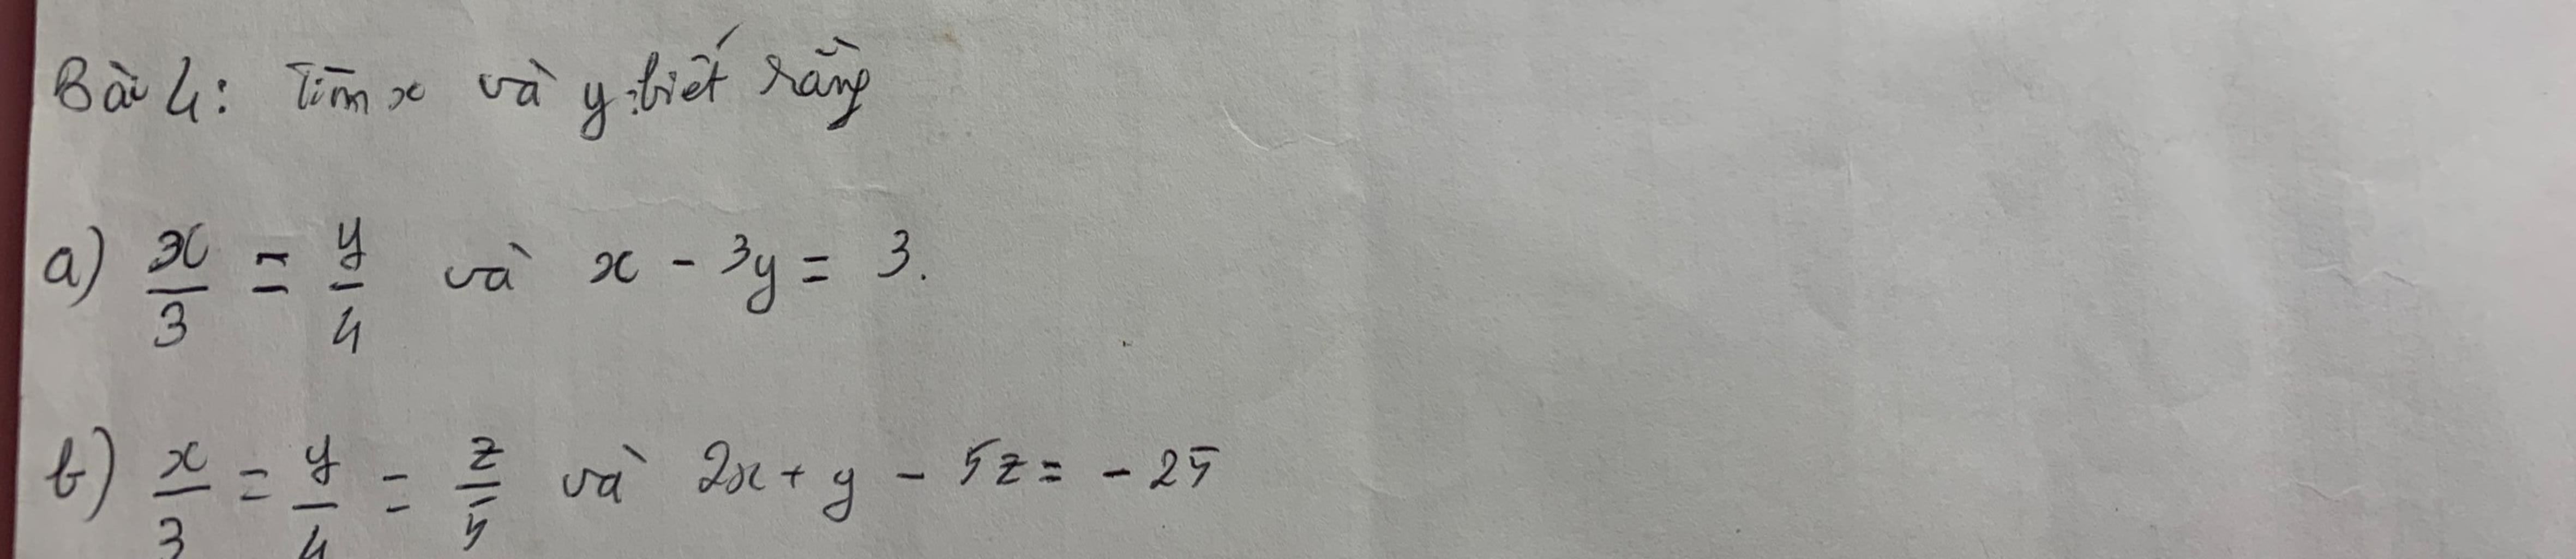 Bài 4: Tìm x và y biết rằng
a) x/3 = y/4 và x - 3y = 3.
b) x/3 = y/4 = z/5 và 2x + y - 5z = - 25